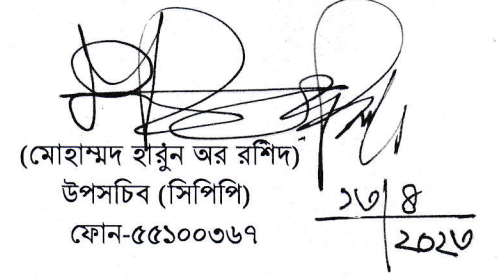 (মোহাম্মদ হারুন অর রশিদ)
উপসচিব (সিপিপি)
ফোন-৫৫১০০৩৬৭
১৩|৪
২০২৩